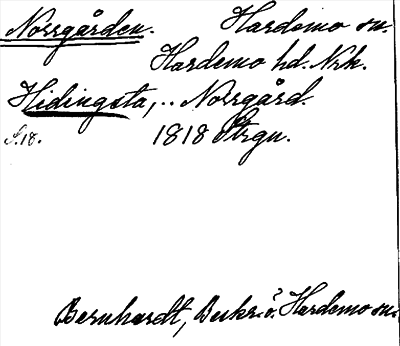 Norrgården. Hardemo sn.
Hardemo hd. Nrk.
Hidingsta, .. Norrgård.
S. 18. 1818 Strgn.
Bernhardt, Beskr. ö. Hardemo sn.